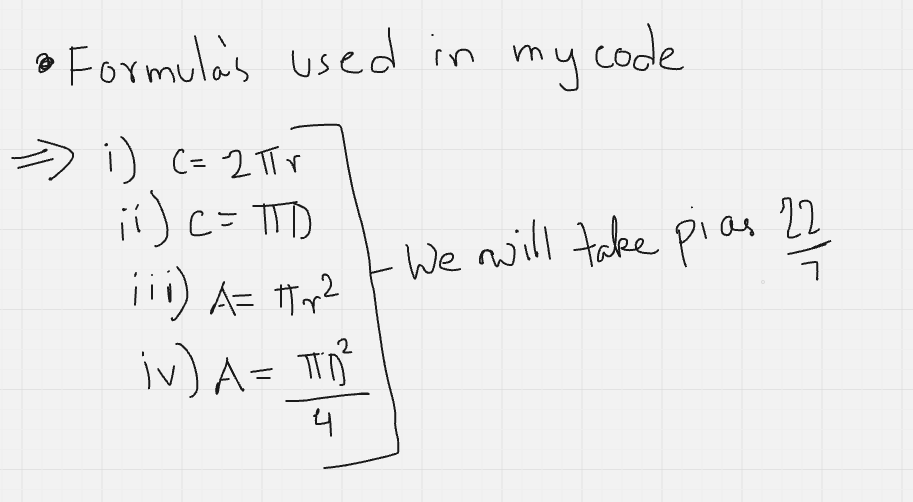 • Formula's used in my code
⇒ i) C = 2πr
ii) C = πD
iii) A = πr²
iv) A = πD²/4
- We will take pi as 22/7